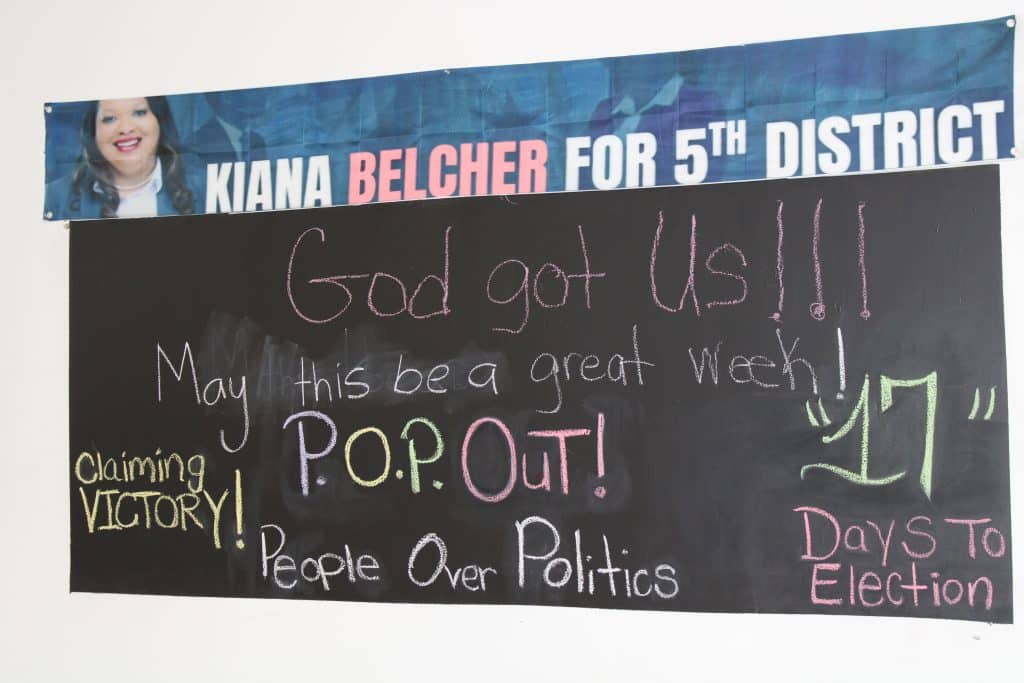 KIANA BELCHER FOR 5TH DISTRICT
God got Us!!!
May this be a great week!
P.O.P. OuT!
"17"
Claiming
VICTORY!
People Over Politics
Days To
Election